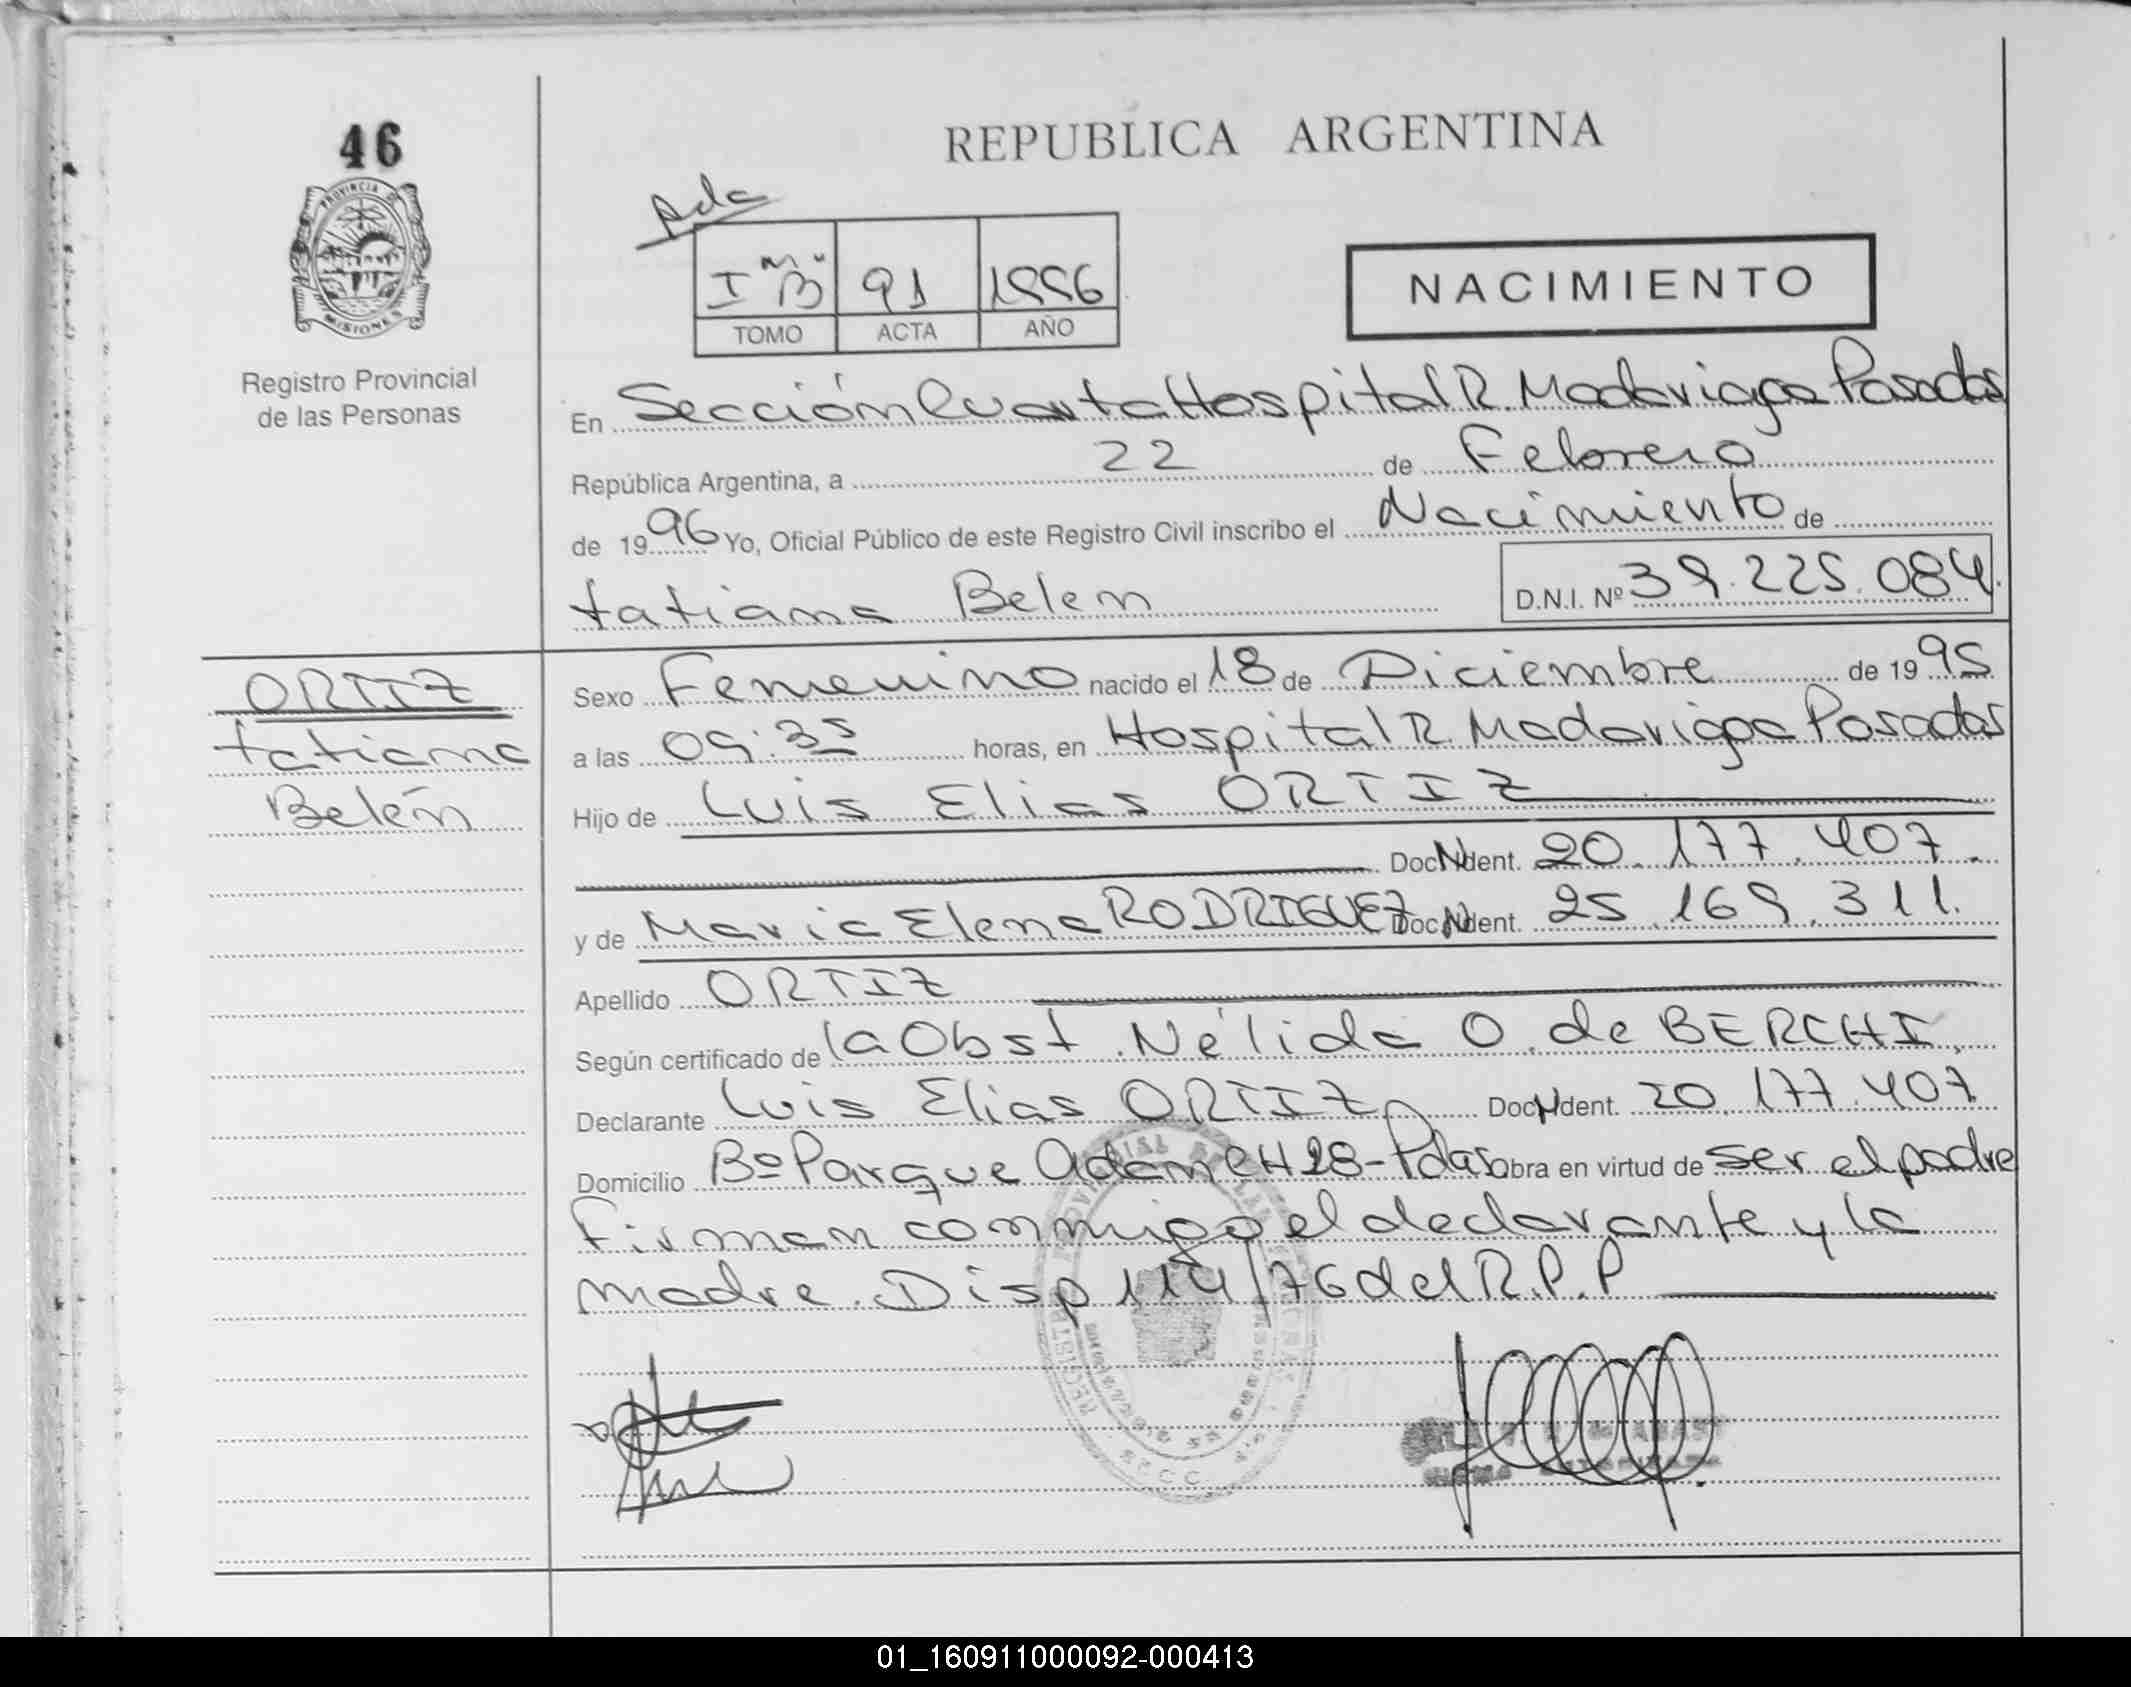 46
PROVINCIA DE
MISIONES
Registro Provincial
de las Personas
REPUBLICA ARGENTINA
I "B" 91 1996
TOMO ACTA AÑO
NACIMIENTO
En Sección Cuarta Hospital R. Madariaga Posadas
República Argentina, a 22 de Febrero
de 1996 Yo, Oficial Público de este Registro Civil inscribo el Nacimiento de
tatiana Belen D.N.I. Nº 39.225.084.
ORTIZ
tatiana
Belén
Sexo Femenino nacido el 18 de Diciembre de 1995
a las 09:35 horas, en Hospital R. Madariaga Posadas
Hijo de Luis Elias ORTIZ
Doc N Ident. 20.177.407.
y de Maria Elena RODRIGUEZ Doc N Ident. 25.169.311.
Apellido ORTIZ
Según certificado de la Obst. Nélida O. de BERCHI,
Declarante Luis Elias ORTIZ Doc N Ident. 20.177.407
Domicilio Bº Parque Adam CH 28-Pdas obra en virtud de ser el padre
Firman conmigo el declarante y la
madre. Disp 114/76 del R.P.P
01_160911000092-000413